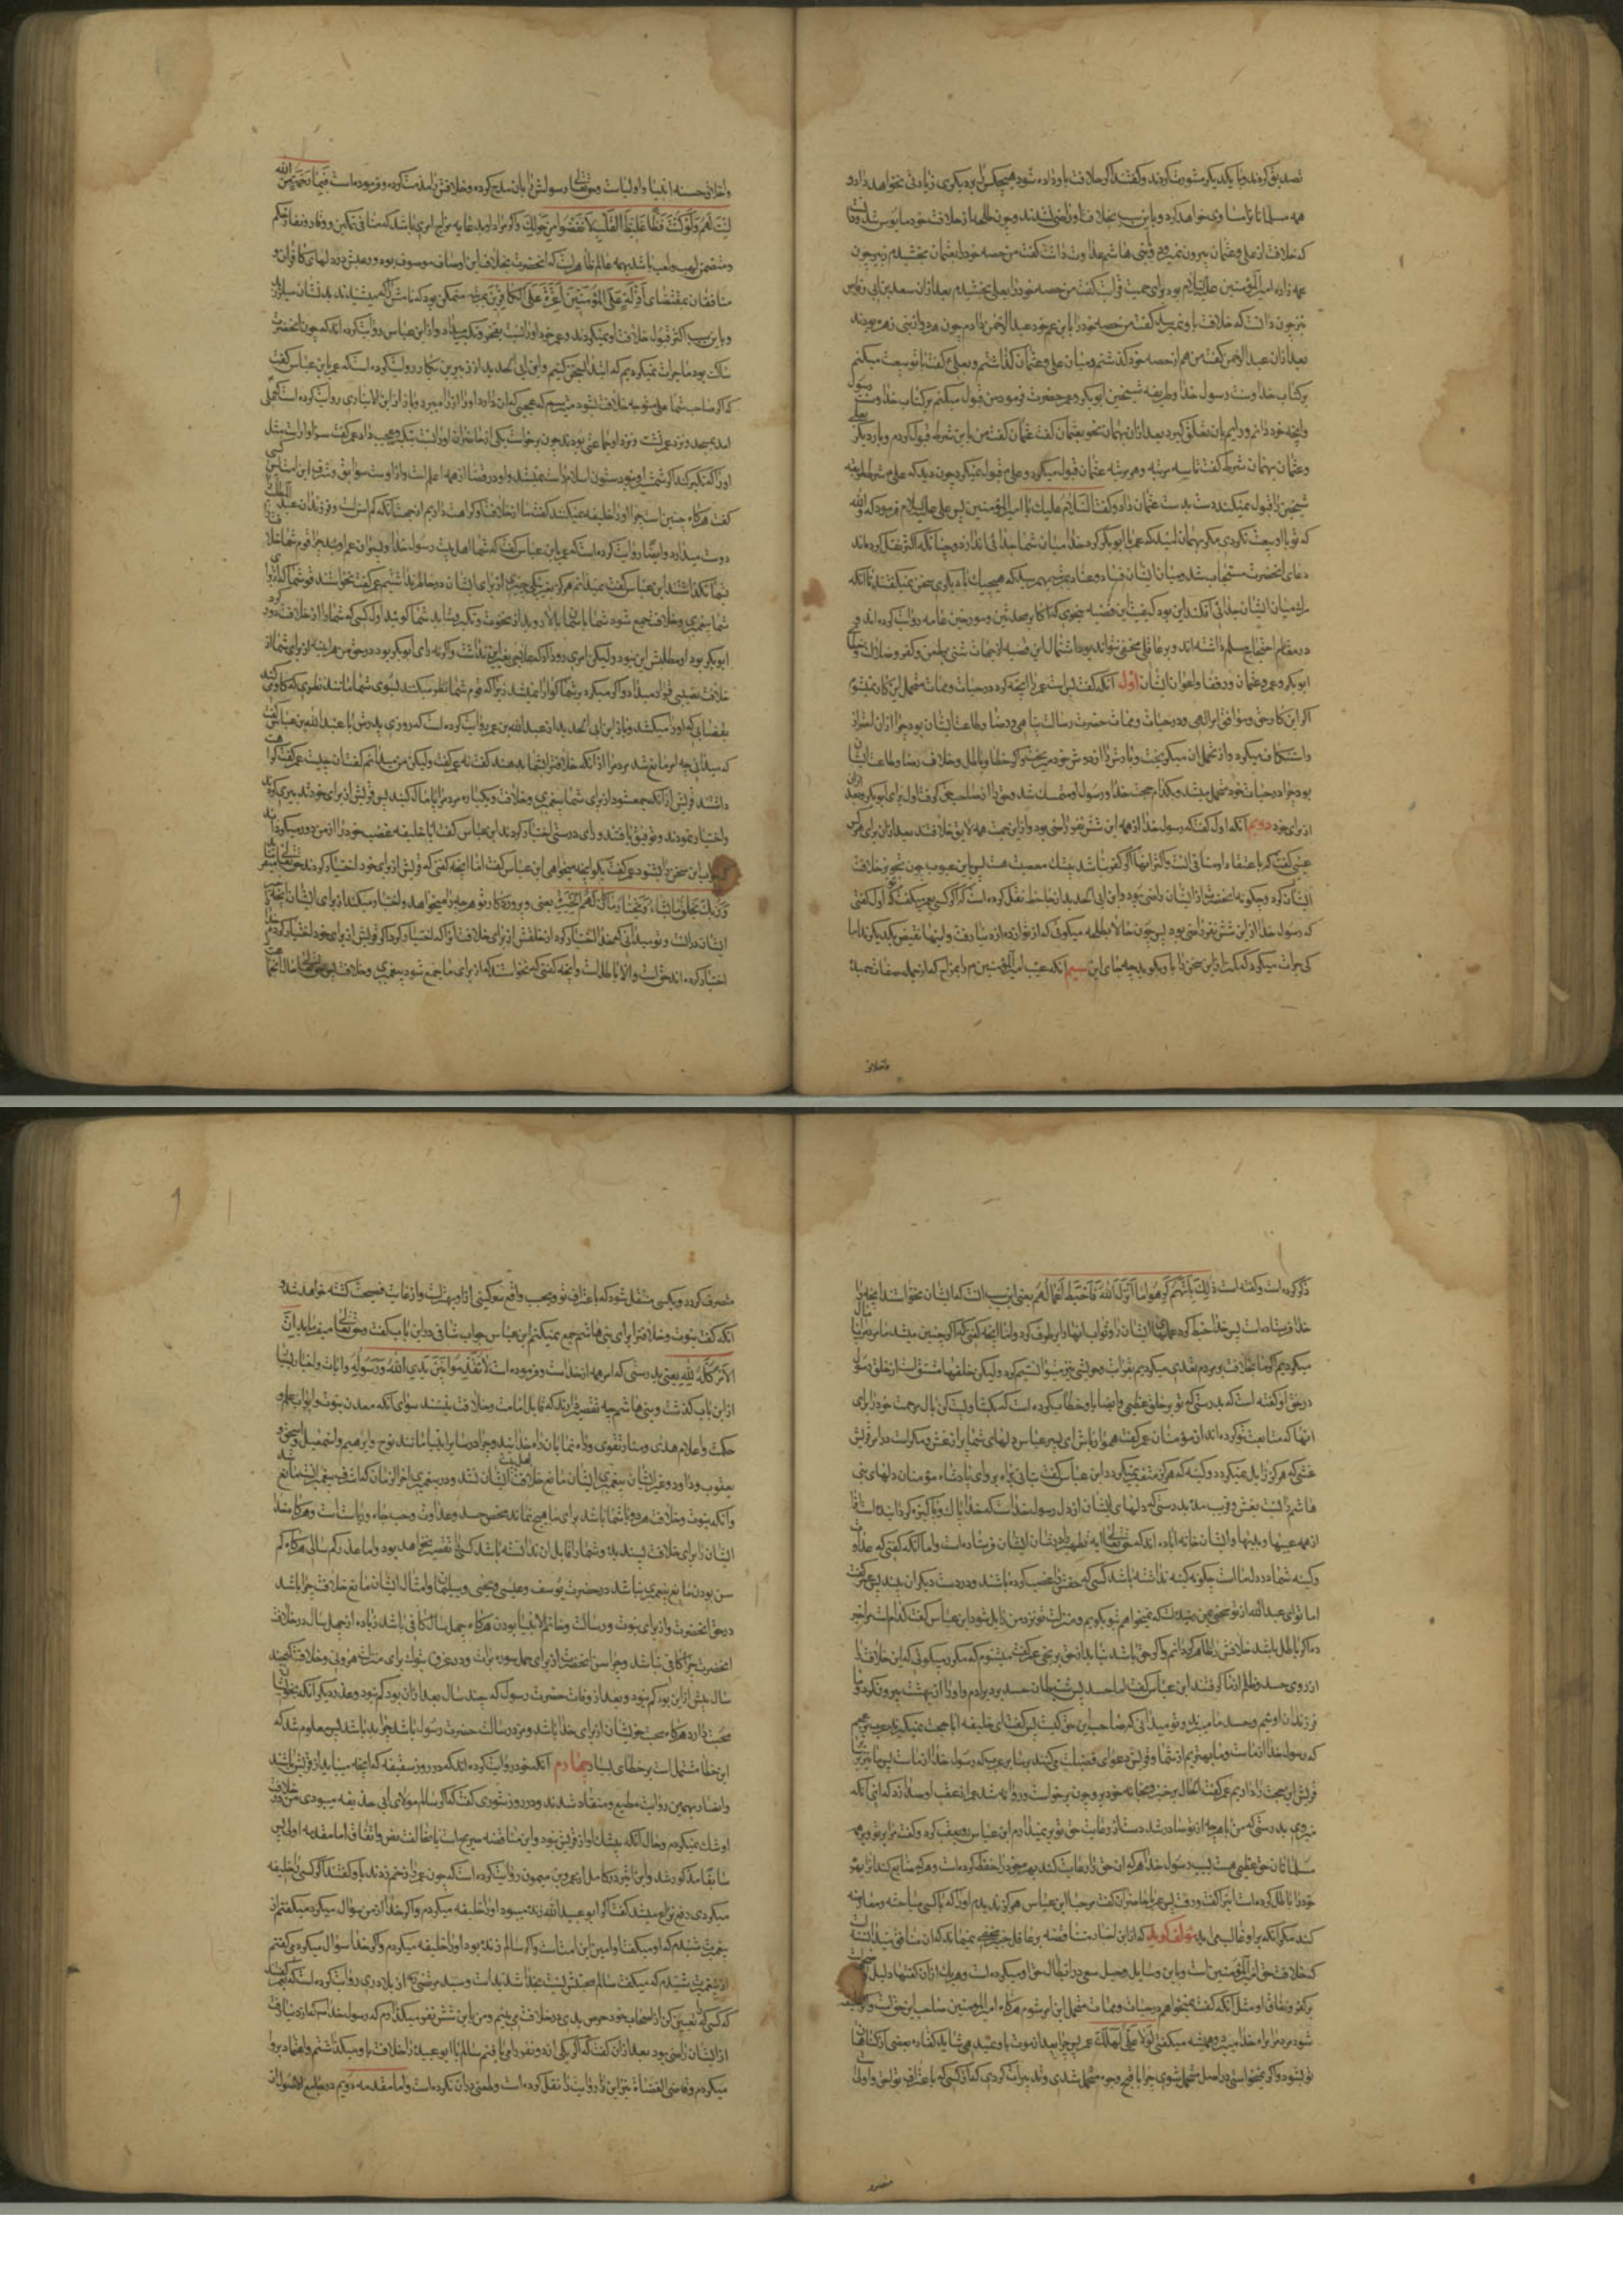 تصدیق کردند و با یکدیکر مشورت کردند و کفتند اکر خلافت باو داده شود هیچکس را بر دیکری زیادتی نخواهد داد و
همه مسلمانانرا مساوی خواهد کرد و باین سبب بخلافت او راضی نشدند و چون طلحه از خلافت خود مایوس شد و
که خلافت از علی و عثمان بیرون نمیرود و با بنی هاشم عداوت داشت کفت من حصه خود را بعثمان بخشیدم زبیر چون
عمه زاده امیرالمؤمنین علیه السلام بود برای حمیت قرابت کفت من حصه خود را بعلی بخشیدم بعد ازان سعد بن ابی وقاص
نیز چون دانست که خلافت باو نمیرسد کفت من حصه خود را بابن عم خود عبدالرحمن دادم چون هر دو از بنی زهره بودند
بعد ازان عبدالرحمن کفت من هم از حصه خود کذشتم و میان علی و عثمان کذاشتم و بعلی کفت با تو بیعت میکنم
بر کتاب خدا و سنت رسول خدا و طریقه شیخین ابوبکر و عمر حضرت فرمود من قبول میکنم بر کتاب خدا و سنت رسول
وانچه خود دانم و رایم بان تعلق کیرد بعد ازان بهمان نحو بعثمان کفت عثمان کفت من باین شرط قبول کردم و بار دیکر بعلی
و عثمان بهمان شرط کفت تا سه مرتبه و هر مرتبه عثمان قبول میکرد و علی قبول نمیکرد چون دید که علی شرط طریقه
شیخین را قبول نمیکند دست بدست عثمان داد و کفت السلام علیک یا امیرالمؤمنین پس علی علیه السلام فرمود که والله
که تو با او بیعت نکردی مکر بهمان امید که عمر با ابوبکر کرد خدا میان شما جدائی اندازد و چنانکه اکثر نقل کرده اند
دعای انحضرت مستجاب شد و میان ایشان فساد و عناد بمرتبه بهم رسید که هیچیک با دیکری سخن نمیکفتند تا انکه
مرک میان ایشان جدائی افکند این بود کیفیت این قضیه بنحوی که اکابر محدثین و مورخین عامه روایت کرده اند و
در مقام احتجاج مسلم داشته اند و بر عاقل مخفی نتواند بود اشتمال این قضیه از جهات شتی بر طعن و کفر و ضلالت و خطای
ابوبکر و عمر و عثمان و رفقا و اعوان ایشان اول انکه کفت بس است عمر را انچه کرد در حیات و ممات متحمل این کار نمیشوم
اکر این کار حق و موافق امر الهی و در حیات و ممات حضرت رسالت پناهی و رضا و طاعت ایشان بود چرا ازان احتراز
و استنکاف میکرد و از تحمل ان میکریخت و بارش را از دوش خود میریخت و اکر خطا و باطل و خلاف رضا و طاعت ایشان
بود چرا در حیات خود متحمل میشد و بکدام حجت خدا و رسول او متمسک شد و حق را از صاحب حق کرفت اول برای ابوبکر و بعد ازان
از برای خود دویم انکه اول کفت که رسول خدا از همه این شش نفر راضی بود و ازین جهت همه لایق خلافتند بعد ازان برای هر کس
عیبی کفت که باعتقاد او منافی است و اکثر انها اکر کفر نباشد بیشک معصیت هست پس باین عیوب چون تجویز خلافت
ایشان کرد و چکونه انحضرت از ایشان راضی بود و ابن ابی الحدید از جاحظ نقل کرده است که اکر کسی بعمر میکفت که تو اول کفتی
که رسول خدا ازین شش نفر راضی بود پس چون حالا بطلحه میکوئی که از تو ازرده از دنیا رفت و اینها نقیض یکدیکرند اما
کی جرات میکرد که کمتر ازین سخن را باو بکوید چه جای این سیم انکه عیب امیرالمؤمنین را بمزاح که از جمله صفات حمیده
واخلاق
و اخلاق حسنه انبیا و اولیاست و حق تعالی رسولش را بان مدح کرده و خلافش را مذمت کرده و فرموده است فبما رحمة من الله
لنت لهم ولو كنت فظا غليظ القلب لانفضوا من حولك و اکر مراد او بدعابه مزاح امری باشد که منافی تمکین و وقار و نفاذ حکم
و متضمن لهو و لعب باشد بهمه عالم ظاهر است که انحضرت بخلاف این اوصاف موصوف بوده و رعبش در دلهای کافران و
منافقان بمقتضای اذلة على المؤمنين اعزة على الكافرين بمرتبه متمکن بود که نامش را که میشنیدند بدنشان میلرزید
و باین سبب اکثر قبول خلافت او نمیکردند و عمر خود او را نسبت بفخر و تکبر میداد و از ابن عباس روایت کرده اند که چون انحضرت
ساکت بود ما جرات نمیکردیم که ابتدا بسخن کنیم و ابن ابی الحدید از زبیر بن بکار روایت کرده است که عمر بابن عباس کفت
که اکر صاحب شما علی متوجه خلافت شود میترسم که عجبی که ان دارد او را از راه ببرد و باز از ابن الانباری روایت کرده است که علی
امد بمسجد و نزد عمر نشست و نزد او جماعتی بودند چون برخواست یکی از حاضران او را نسبت بتکبر و عجب داد عمر کفت سزاوار است مثل
او را که تکبر کند اکر شمشیر او نبود ستون اسلام راست نمیشد و او در قضا از همه اعلم است و او راست سوابق و شرف این امت پس کسی
کفت هرکاه چنین است چرا او را خلیفه نمیکنید کفت ما از خلافت او کراهت داریم از جهت انکه کم سن است و فرزندان عبدالمطلب را
دوست میدارد و ایضا روایت کرده است که عمر بابن عباس کفت که شما اهلبیت رسول خدا و پسران عم اوئید چرا قوم شما خلافت را
بشما نکذاشتند ابن عباس کفت نمیدانم هرکز بغیر نیکی چیزی از برای ایشان در خاطر نداشتیم عمر کفت نخواستند قوم شما که از برای
شما پیغمبری و خلافت جمع شود شما باسمان بالا روید از نخوت و تکبر و شاید شما کوئید اول کسی که شما را از خلافت دور کرد
ابوبکر بود او مطلبش این نبود و لیکن امری رو داد که علاجی بغیر این نداشت و اکر نه رای ابوبکر بود در حق من هر اینه از برای شما از
خلافت نصیبی قرار میداد و اکر میکرد بر شما کوارا نمیشد زیرا که قوم شما نظر میکنند بسوی شما مانند نظری که کاو میکند
بقصابی که او را میکشد و باز ابن ابی الحدید از عبدالله بن عمر روایت کرده است که روزی پدرش با عبدالله بن عباس کفت
که میدانی چه امر مانع شد مردم را از انکه خلافت را بشما بدهند کفت نه عمر کفت ولیکن من میدانم کفت ان چیست عمر کفت کراهت
داشتند قریش از انکه جمع شود از برای شما پیغمبری و خلافت و یکباره مردم را پامال کنید پس قریش از برای خود تدبیری کردند
و اختیار نمودند و توفیق یافتند و رای درستی اختیار کردند ابن عباس کفت ایا خلیفه غضب خود را از من دور میکرداند
که جواب این سخن را بشنود عمر کفت بکو انچه میخواهی ابن عباس کفت اما انچه کفتی که قریش از برای خود اختیار کردند حق تعالی میفرماید
وربك يخلق ما يشاء ويختار ما كان لهم الخيرة یعنی و پروردکار تو هر چه را میخواهد و اختیار میکند از برای ایشان انچه
ایشان راست و تو میدانی که خدا اختیار کرد از خلقش از برای خلافت انرا که اختیار کرد اکر قریش از برای خود اختیار کردند انچه خدا
اختیار کرده اند حق است والا باطل است و انچه کفتی که نخواستند که از برای ما جمع شود پیغمبری و خلافت پس حق تعالی
ذکر کرده است و کفته است ذلك بانهم كرهوا ما انزل الله فاحبط اعمالهم یعنی این بسبب انست که ایشان نخواستند انچه را
خدا فرستاده است پس خدا حبط کرد عملهای ایشان را و ثواب انها را برطرف کرد و اما انچه کفتی که اکر چنین میشد ما مردم را پامال
میکردیم اکر ما بخلافت بر مردم تعدی میکردیم بقرابت و خویشی نیز میتوانستیم کرد ولیکن خلقهای ما مشتق است از خلق رسول
در حق او کفته است که بدرستی که تو بر خلق عظیمی و ایضا باو خطاب کرده است که بکشا و پست کن بال مرحمت خود را برای
انها که متابعت تو کرده اند از مؤمنان عمر کفت هموار باش ای پسر عباس دلهای شما پر از غش و مکر است در امر قریش
غشی که هرکز زایل نمیکردد و کینه که هرکز متغیر نمیکردد ابن عباس کفت بتانی براه برو ای پادشاه مؤمنان دلهای بنی
هاشم را نسبت بغش و فریب مده بدرستی که دلهای ایشان از دل رسول خداست که خدا پاک و پاکیزه کردانیده است
از همه عیبها و بدیها و ایشان خانه اباده اند که حق تعالی ایه تطهیر را در شان ایشان فرستاده است و اما انکه کفتی که عداوت
و کینه شما در دل ماست چکونه کینه نداشته باشد کسی که حقش را غصب کرده باشند و در دست دیکران بیند پس عمر کفت
اما تو ای عبدالله از تو سخنی بمن رسیده است که نمیخواهم بتو بکویم و منزلت تو نزد من زایل شود ابن عباس کفت کدام است مرا خبر
ده اکر باطل باشد خلافش را ظاهر کردانم و اکر حق باشد نباید از حق برنجی عمر کفت میشنوم که مکرر میکوئی که این خلافت را
از روی حسد و ظلم از ما کرفتند ابن عباس کفت اما حسد پس شیطان حسد برد بر ادم و او را از بهشت بیرون کرد و ما
فرزندان اوئیم و حسد ما میبرند و تو میدانی که صاحب این حق کیست پس کفت ای خلیفه ایا حجت نمیکیرند عرب بر عجم
که رسول خدا از ماست و ما بهتریم از شما و قریش دعوای فضیلت میکنند بر سایر عرب که رسول خدا از ماست پس ما نیز بر
قریش این حجت را داریم عمر کفت الحال برخیز و بخانه خود برو چون برخواست و روانه شد عمر از عقب او صدا زد که ای انکه
میروی بدرستی که من با هر چه از تو صادر شد دست از رعایت حق تو برنمیدارم ابن عباس رو بعقب کرد و کفت مرا بر تو و بر همه
مسلمانان حق عظیمی هست بسبب رسول خدا هر که ان حق را رعایت کند بهره خود را حفظ کرده است و هر که ضایع کند انرا بهره
خود را باطل کرده است اینرا کفت و رفت پس عمر با حاضران کفت مرحبا بابن عباس هرکز ندیدم او را که با کسی مباحثه و معارضه
کند مکر انکه بر او غالب می اید مؤلف کوید که از این اخبار متناقضه بر عاقل خبیر مخفی نمیماند که ان منافق میدانست
که خلافت حق امیرالمؤمنین است و باین وسایل و حیل سعی در ابطال حق او میکرده است و هر یک ازان کفتها دلیل صریح است
بر کفر و نفاق او مثل انکه کفت نمیخواهم در حیات و ممات متحمل این امر شوم هرکاه امیرالمؤمنین صاحب این حق است و اکر خلیفه
شود مردم را براه خدا میبرد و همیشه میکفتی لولا علي لهلك عمر پس چرا بعد از موت باو عهد نمی شاید کفاره بعضی از کناهان
تو بشود و اکر نمیخواستی در اصل متحمل شوی چرا باقبح وجوه متحمل شدی و تدبیرات کردی که از کسی که باعتراف تو احق و اولی است
منصرف
منصرف کردد و بکسی منتقل شود که باعتراف تو و بحسب واقع معرکینی ازو بهتر است و از غایت فضیحت کشته خواهد شد و
انکه کفت نبوت و خلافت را برای بنی هاشم جمع نمیکنم ابن عباس جواب شافی در این باب کفت و حق تعالی میفرماید ان
الامر كله لله یعنی بدرستی که امر همه از خداست و فرموده است لا تقدموا بين يدي الله ورسوله و ایات و اخبار بسیار
از این باب کذشت و بنی هاشم چه تقصیر دارند که قابل امامت و خلافت نیستند سوای انکه معدن نبوت و ابواب علم و
حکمت و اعلام هدی و منار تقوی و راه نمایان راه خدایند و چرا در سایر انبیا مانند نوح و ابراهیم و اسمعیل و اسحق و
یعقوب و داود و غیر ایشان پیغمبری ایشان مانع خلافت اهلبیت ایشان نشد و در پیغمبر اخر الزمان که اشرف پیغمبرانست مانع شد
و انکه نبوت و خلافت هر دو با شما باشد برای ما هیچ نماند محض حسد و عداوت و حب جاه و ریاست است و هرکاه خدا
ایشان را برای خلافت پسندیده و شما را قابل ان ندانسته باشد کسی را تقصیر نخواهد بود و اما عذر کم سالی هرکاه کم
سن بودن مانع پیغمبری نباشد در حضرت یوسف و عیسی و یحیی و سلیمان و امثال ایشان مانع خلافت چرا باشد
در حق انحضرت و از برای نبوت و رسالت و خاتم الانبیا بودن هرکاه چهل سال کافی باشد زیاده از چهل سال در خلافت
انحضرت چرا کافی نباشد و چرا سن انحضرت از برای حمل سوره برات و در غزوه تبوک برای منزلت هرونی و خلافت که چند
سال پیش ازین بود کم نبود و بعد از وفات حضرت رسول که چند سال بعد ازان بود کم بود و عذر دیکر انکه بخویشان
محبت دارد هرکاه محبت خویشان از برای خدا باشد و نزد رسالت حضرت رسول باشد چرا بد باشد پس معلوم شد که
این خطا مشتمل است بر خطای بسیار چهارم انکه خود روایت کرده اند که در روز سقیفه که امامت میباید از قریش باشد
و انصار بهمین روایت مطیع و منقاد شدند و در روز شوری کفت که اکر سالم مولای ابی حذیفه میبود من در خلافت
او شک نمیکردم و حال انکه بیشک او از قریش نبود و این مناقضه صریح است با مخالفت نص و اتفاق اما مقدمه اولی پس
سابقا مذکور شد و ابن اثیر در کامل از عمرو بن میمون روایت کرده است که چون عمر را زخم زدند باو کفتند اکر کسی را خلیفه
میکردی رفع نزاع میشد کفت اکر ابو عبیده زنده میبود او را خلیفه میکردم و اکر خدا از من سؤال میکرد میکفتم از
پیغمبرت شنیدم که او میکفت او امین این امت است و اکر سالم زنده بود او را خلیفه میکردم و اکر خدا سؤال میکرد میکفتم
از پیغمبرت شنیدم که میکفت سالم محبتش نسبت بخدا شدید است و سید مرتضی از بلاذری روایت کرده است که عمر کفتند
که کسی که تعیین کن از اصحاب خود حرص بدی در خلافت می بینم و من باین شش نفر میکذارم که رسول خدا که از دنیا رفت
از ایشان راضی بود بعد ازان کفت که اکر یکی از دو نفر را می یافتم سالم یا ابو عبیده را خلافت باو میکذاشتم و اعتماد برو
میکردم و قاضی القضاة نیز این روایت را نقل کرده است و طعنی دران نکرده است و اما مقدمه دویم در جامع الاصول از